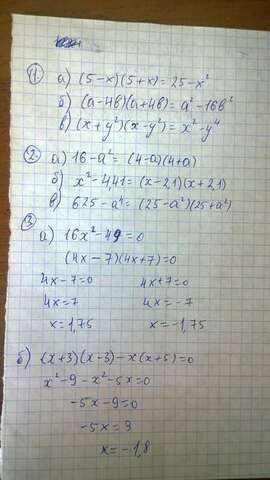 1) а) (5-x)(5+x)=25-x²
б) (a-4b)(a+4b)=a²-16b²
в) (x+y²)(x-y²)=x²-y⁴
2. а) 16-a²=(4-a)(4+a)
б) x²-4,41=(x-2,1)(x+2,1)
в) 625-a⁴=(25-a²)(25+a²)
3) а) 16x²-49=0
(4x-7)(4x+7)=0
4x-7=0 4x+7=0
4x=7 4x=-7
x=1,75 x=-1,75
б) (x+3)(x-3)-x(x+5)=0
x²-9-x²-5x=0
-5x-9=0
-5x=9
x=-1,8